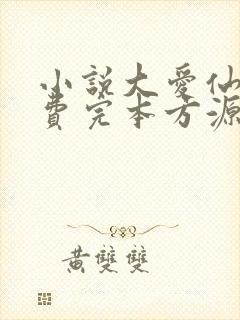 小說大愛仙
費完本方源
黃雙雙